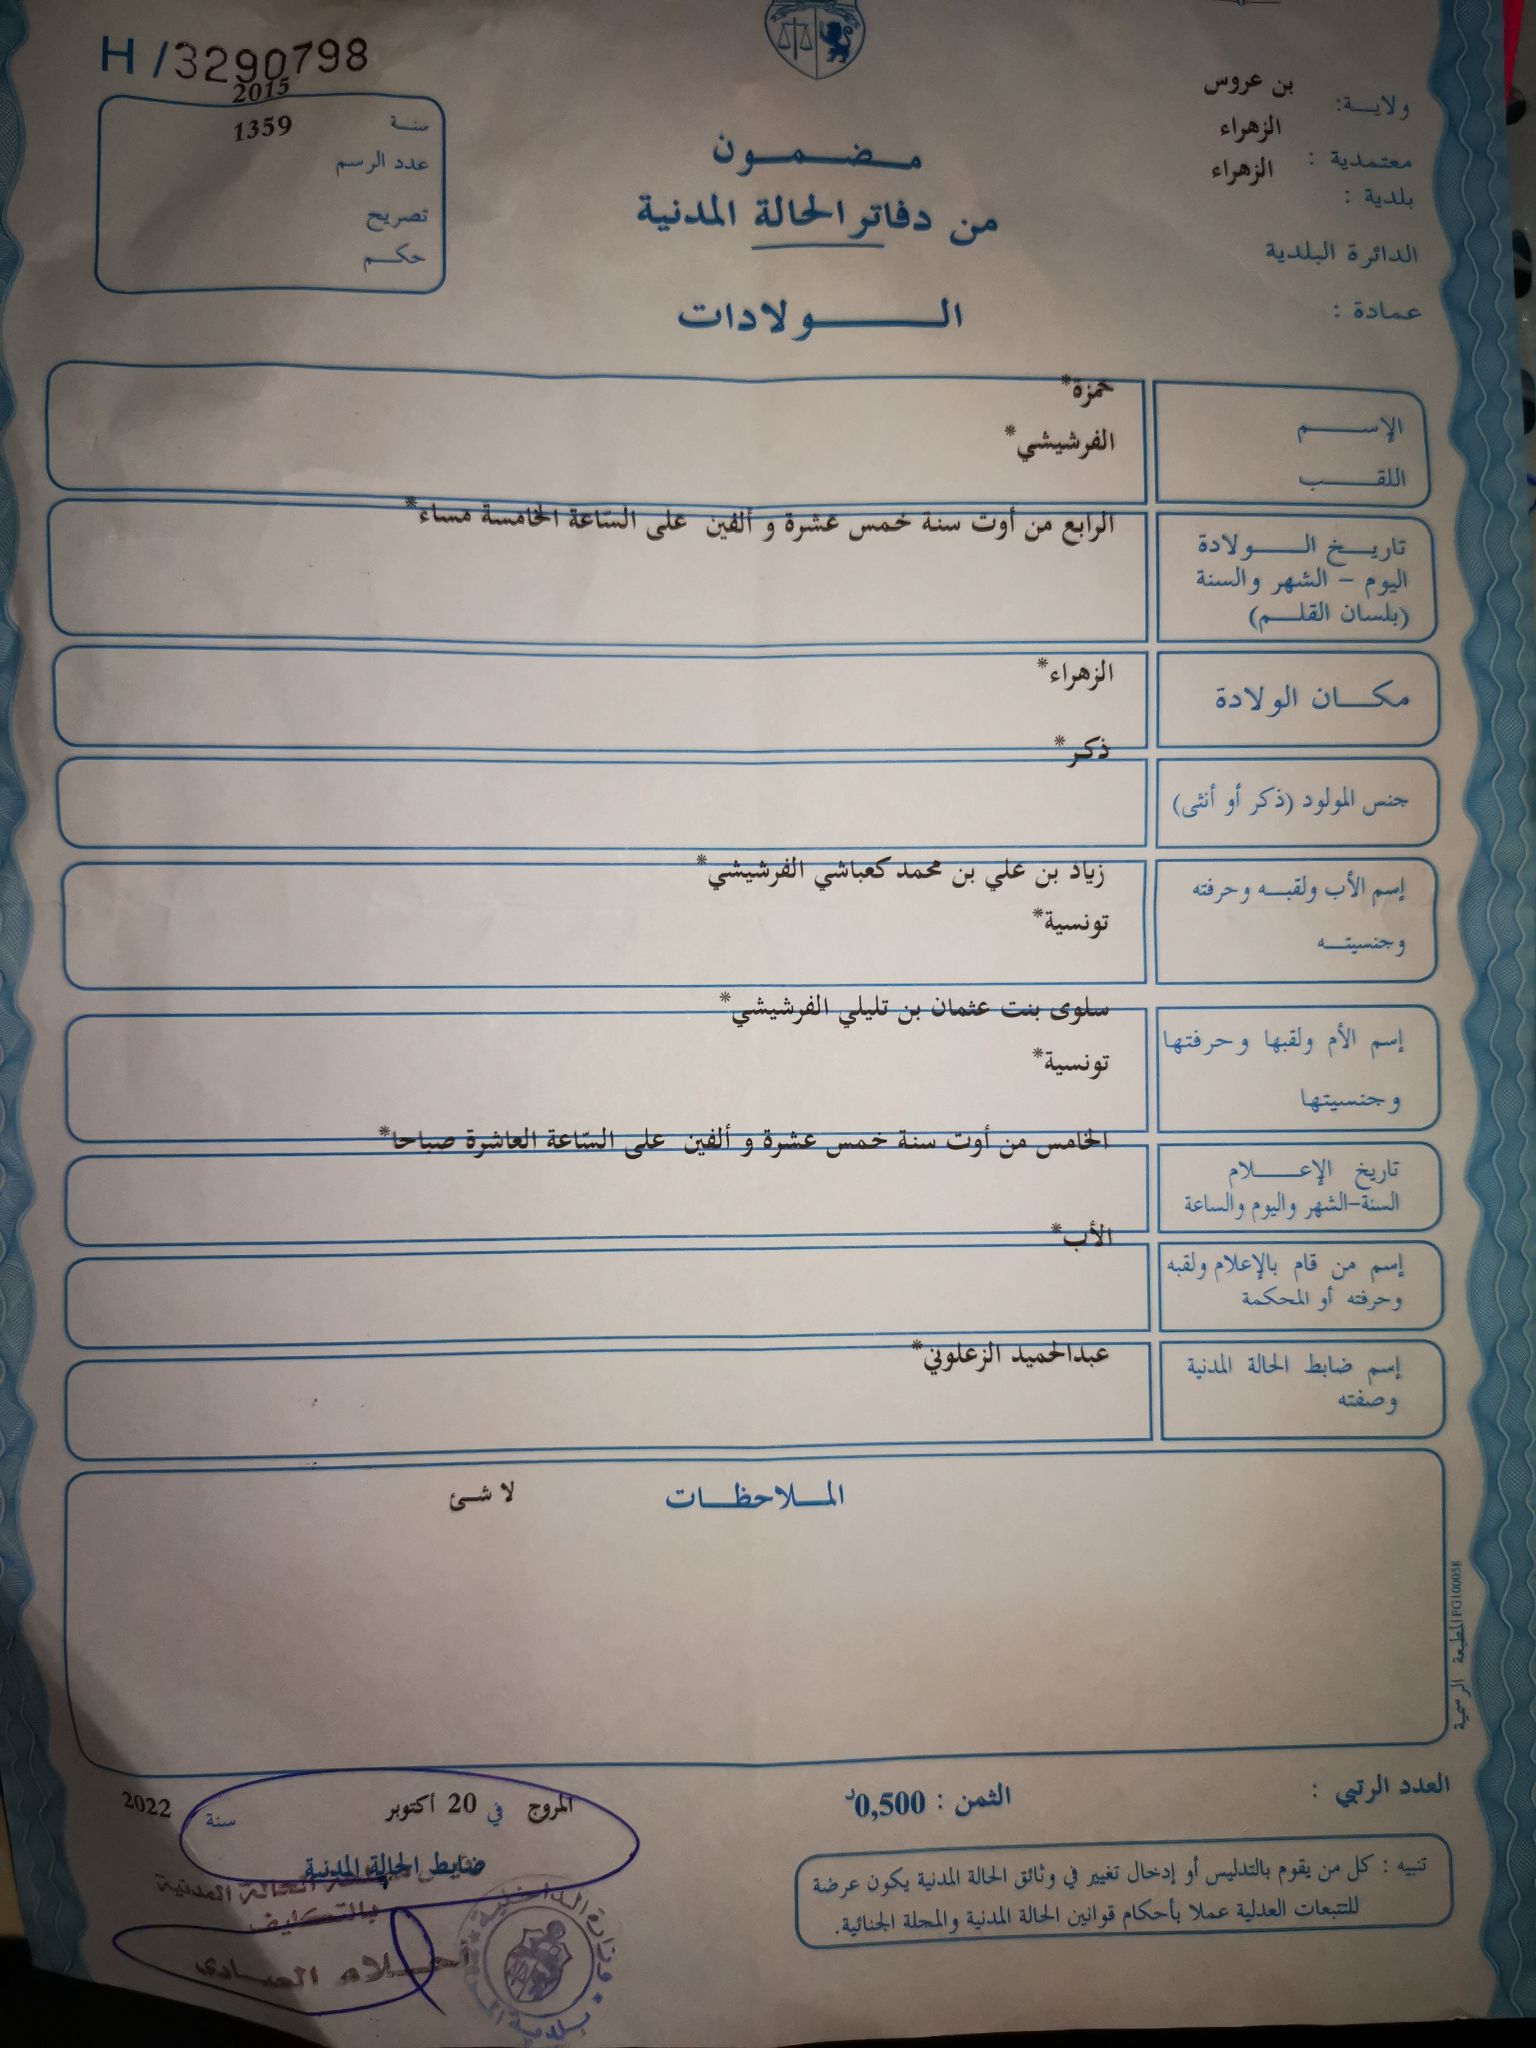 H/3290798
2015
سنة
1359
عدد الرسم
تصريح
حكم
ولاية: بن عروس
معتمدية : الزهراء
بلدية : الزهراء
الدائرة البلدية
عمادة :
مضمون
من دفاتر الحالة المدنية
الولادات
الإسم
حمزة*
اللقب
الفرشيشي*
تاريخ الولادة
اليوم - الشهر والسنة
(بلسان القلم)
الرابع من أوت سنة خمس عشرة و ألفين على السّاعة الخامسة مساء*
مكان الولادة
الزهراء*
جنس المولود (ذكر أو أنثى)
ذكر*
إسم الأب ولقبه وحرفته
وجنسيته
زياد بن علي بن محمد كعباشي الفرشيشي*
تونسية*
إسم الأم ولقبها وحرفتها
وجنسيتها
سلوى بنت عثمان بن تليلي الفرشيشي*
تونسية*
تاريخ الإعلام
السنة-الشهر واليوم والساعة
الخامس من أوت سنة خمس عشرة و ألفين على السّاعة العاشرة صباحا*
إسم من قام بالإعلام ولقبه
وحرفته أو المحكمة
الأب*
إسم ضابط الحالة المدنية
وصفته
عبدالحميد الزعلوني*
الملاحظات
لا شئ
المطبعة الرسمية FG100058
العدد الرتبي :
الثمن : 0,500د
المروج في 20 أكتوبر سنة 2022
ضابط الحالة المدنية
الحالة المدنية
بالتكليف
أحلام العبادي
وزارة الداخلية
بلدية
تنبيه : كل من يقوم بالتدليس أو إدخال تغيير في وثائق الحالة المدنية يكون عرضة
للتتبعات العدلية عملا بأحكام قوانين الحالة المدنية والمجلة الجنائية.